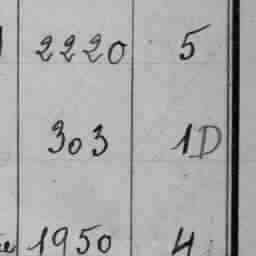 2220 5
303 1D
1950 4